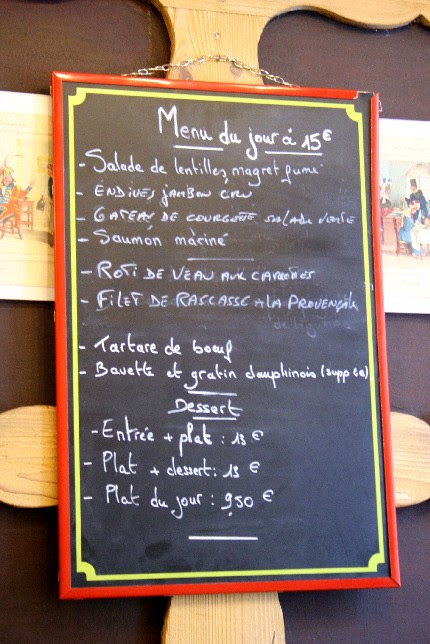 Menu du jour à 15€
- Salade de lentilles, magret fumé
- ENDIVES, JAMBON CRU
- GATEAU DE COURGETTE SALADE VERTE
- Saumon mariné
- ROTI DE VEAU AUX CAROTTES
- FILET DE RASCASSE A LA PROVENÇALE
- Tartare de boeuf
- Bavette et gratin dauphinois (supp 6€)
Dessert
- Entrée + plat : 13 €
- Plat + dessert : 13 €
- Plat du jour : 9,50 €